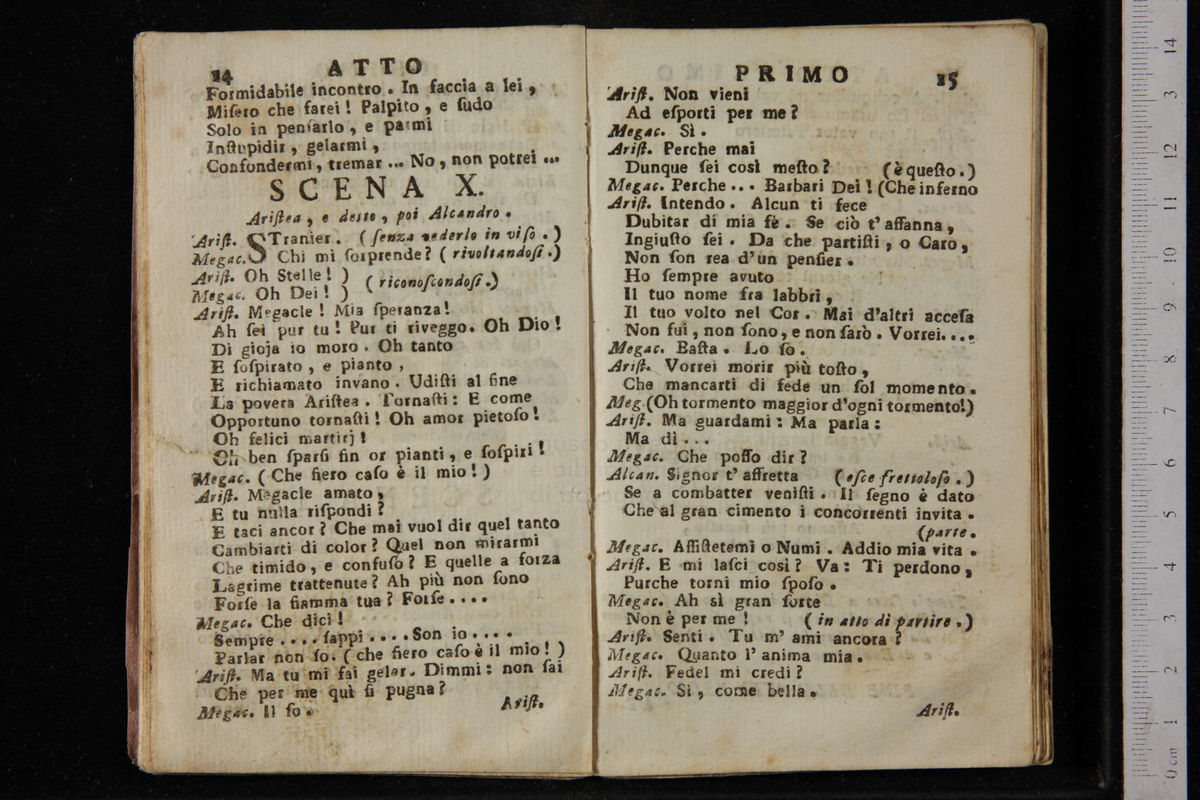 14 ATTO
Formidabile incontro. In faccia a lei,
Miſero che farei! Palpito, e ſudo
Solo in penſarlo, e parmi
Inſtupidir, gelarmi,
Confondermi, tremar ... No, non potrei ...
SCENA X.
Ariſtea, e detto, poi Alcandro.
Ariſt. STranier. (ſenza vederlo in viſo.)
Megac. Chi mi ſorprende? (rivoltandoſi.)
Ariſt. Oh Stelle! )
Megac. Oh Dei! ) (riconoſcendoſi.)
Ariſt. Megacle! Mia ſperanza!
Ah ſei pur tu! Pur ti riveggo. Oh Dio!
Di gioja io moro. Oh tanto
E ſoſpirato, e pianto,
E richiamato invano. Udiſti al fine
La povera Ariſtea. Tornaſti: E come
Opportuno tornaſti! Oh amor pietoſo!
Oh felici martirj!
Oh ben ſparſi fin or pianti, e ſoſpiri!
Megac. (Che fiero caſo è il mio!)
Ariſt. Megacle amato,
E tu nulla riſpondi?
E taci ancor? Che mai vuol dir quel tanto
Cambiarti di color? Quel non mirarmi
Che timido, e confuſo? E quelle a forza
Lagrime trattenute? Ah più non ſono
Forſe la fiamma tua? Forſe....
Megac. Che dici!
Sempre .... ſappi .... Son io ....
Parlar non ſo. (che fiero caſo è il mio!)
Ariſt. Ma tu mi fai gelar. Dimmi: non ſai
Che per me quì ſi pugna?
Megac. Il ſo.
Ariſt.
PRIMO 15
Ariſt. Non vieni
Ad eſporti per me?
Megac. Sì.
Ariſt. Perche mai
Dunque ſei così meſto? (è queſto.)
Megac. Perche ... Barbari Dei! (Che inferno
Ariſt. Intendo. Alcun ti fece
Dubitar di mia fè. Se ciò t'affanna,
Ingiuſto ſei. Da che partiſti, o Caro,
Non ſon rea d'un penſier.
Ho ſempre avuto
Il tuo nome fra labbri,
Il tuo volto nel Cor. Mai d'altri acceſa
Non fui, non ſono, e non ſarò. Vorrei....
Megac. Baſta. Lo ſo.
Ariſt. Vorrei morir più toſto,
Che mancarti di fede un ſol momento.
Meg. (Oh tormento maggior d'ogni tormento!)
Ariſt. Ma guardami: Ma parla:
Ma dì...
Megac. Che poſſo dir?
Alcan. Signor t'affretta (eſce frettoloſo.)
Se a combatter veniſti. Il ſegno è dato
Che al gran cimento i concorrenti invita.
(parte.
Megac. Aſſiſtetemi o Numi. Addio mia vita.
Ariſt. E mi laſci così? Va: Ti perdono,
Purche torni mio ſpoſo.
Megac. Ah sì gran ſorte
Non è per me! (in atto di partire.)
Ariſt. Senti. Tu m'ami ancora?
Megac. Quanto l'anima mia.
Ariſt. Fedel mi credi?
Megac. Sì, come bella.
Ariſt.
0 cm 1 2 3 4 5 6 7 8 9 10 11 12 3 14